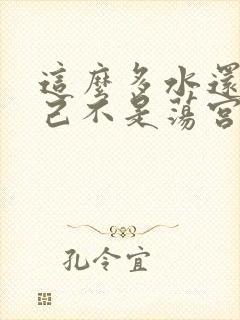 這麼多水還
己不是蕩宮
孔令宜